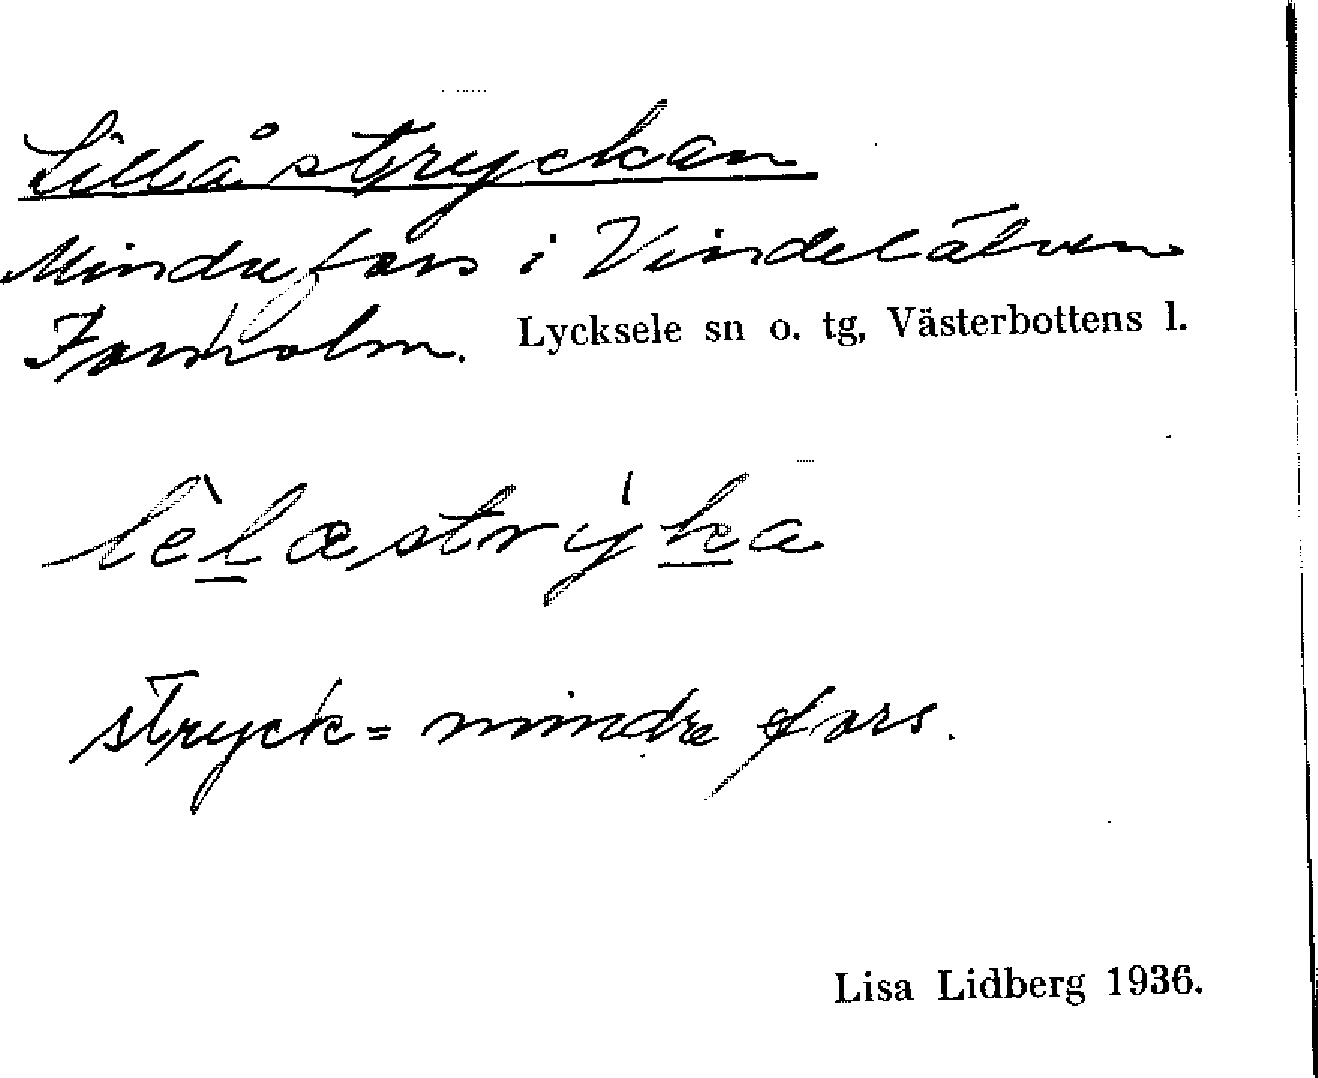 Lillåstryckan
Mindre fors i Vindelälven
Forsholm. Lycksele sn o. tg, Västerbottens l.
lèlæstrýka
stryck = mindre fors.
Lisa Lidberg 1936.